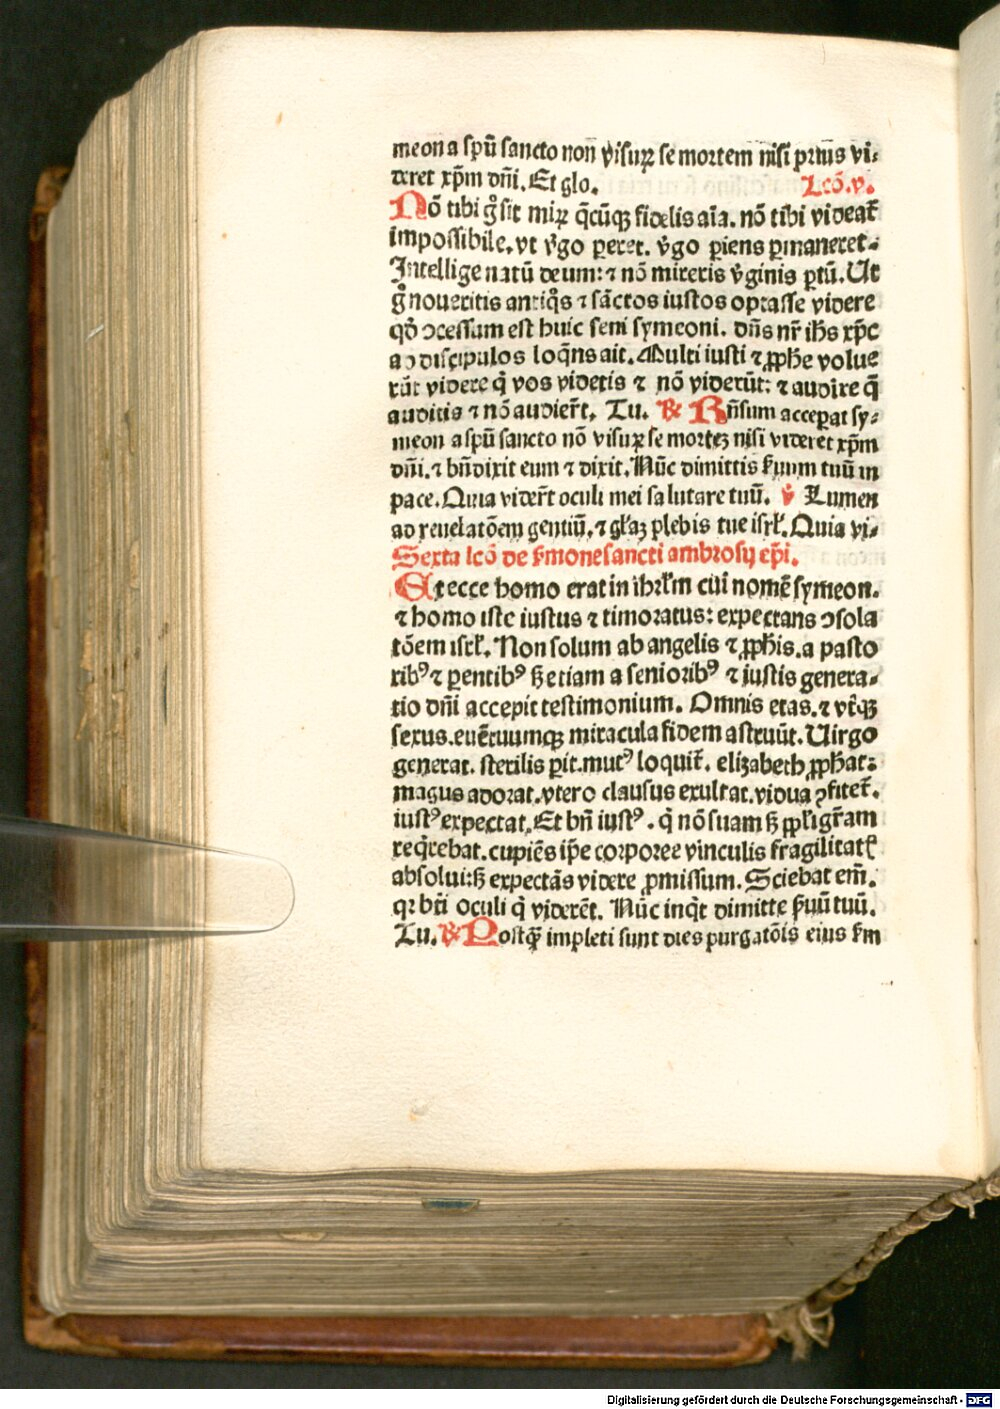 meon a spū sancto non̄ visuꝝ se mortem nisi priꝰ vi⸗
deret xp̄m dn̄i. Et glo. Lcō. v.
Nō tibi gͦ sit miꝝ q̄cūqꝫ fidelis aīa. nō tibi videat᷑
impossibile. vt v̓go peret. v̓go piens ꝑmaneret.
Intellige natū deum: ⁊ nō mireris v̓ginis ꝑtū. Ut
gͦ noueritis antiq̊s ⁊ sāctos iustos optasse videre
qḋ ↄcessum est huic seni symeoni. dn̄s nr̄ ih̄s xp̄c
ad discipulos loq̄ns ait. Multi iusti ⁊ ꝓph̄e volue
rūt videre q̄ vos videtis ⁊ nō viderūt: ⁊ audire q̄
auditis ⁊ nō audier̄t. Tu. ℟ Rn̄sum acceꝑat sy⸗
meon a spū sancto nō visuꝝ se morteꝫ nisi videret xp̄m
dn̄i. ⁊ bn̄dixit eum ⁊ dixit. Nūc dimittis ẜuum tuū in
pace. Quia vider̄t oculi mei salutare tuū. ℣ Lumen
ad reuelatōem gentiū. ⁊ gl̄aꝫ plebis tue isrl̄. Quia vi⸗
Sexta lcō de ẜmone sancti ambrosij ep̄i.
Et ecce homo erat in ihrl̄m cui nomē symeon.
⁊ homo iste iustus ⁊ timoratus: expectans ↄsola
tōem isrl̄. Non solum ab angelis ⁊ ꝓph̄is. a pasto
ribꝰ ⁊ ꝑentibꝰ sꝫ etiam a senioribꝰ ⁊ iustis genera⸗
tio dn̄i accepit testimonium. Omnis etas. ⁊ vt̓qꝫ
sexus. euētuumqꝫ miracula fidem astruūt. Uirgo
generat. sterilis ꝑit. mutꝰ loquit᷑. elizabeth ꝓph̄at:
magus adorat. vtero clausus exultat. vidua ꝯfitet᷑.
iustꝰ expectat. Et bn̄ iustꝰ. q̄ nō suam sꝫ ppl̄i gr̄am
req̄rebat. cupiēs ip̄e corporee vinculis fragilitatꝭ
absolui: sꝫ expectās videre ꝓmissum. Sciebat em̄.
qꝛ bt̄i oculi q̄ viderēt. Nūc inq̄t dimitte ẜuū tuū.
Tu. ℟ Postq̄ꝫ impleti sunt dies purgatōis eius ẜm
Digitalisierung gefördert durch die Deutsche Forschungsgemeinschaft - DFG